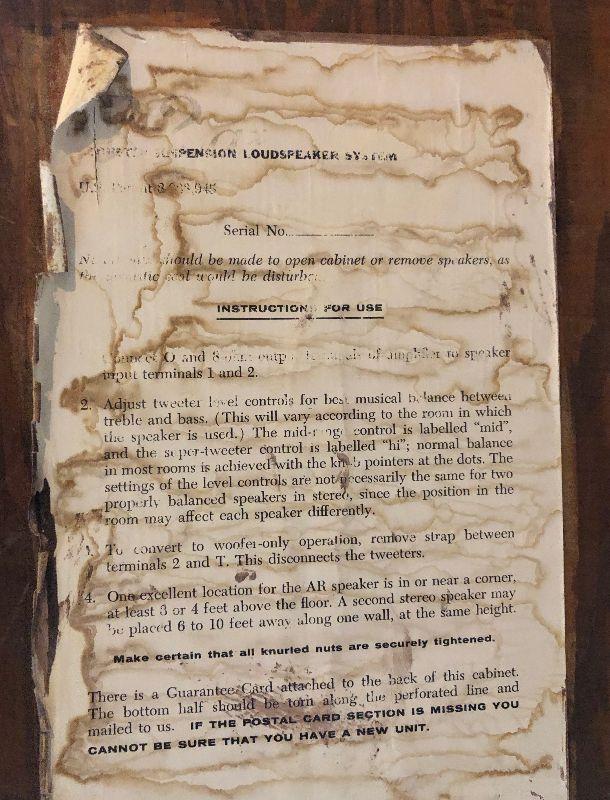 SUSPENSION LOUDSPEAKER SYSTEM
U.S.
Serial No.
should be made to open cabinet or remove speakers, as
would be disturbed
INSTRUCTIONS FOR USE
Connect O and 8 ohm output terminals of amplifier to speaker
input terminals 1 and 2.
2. Adjust tweeter level controls for best musical balance between
treble and bass. (This will vary according to the room in which
the speaker is used.) The mid-range control is labelled “mid”,
and the super-tweeter control is labelled “hi”; normal balance
in most rooms is achieved with the knob pointers at the dots. The
settings of the level controls are not necessarily the same for two
properly balanced speakers in stereo, since the position in the
room may affect each speaker differently.
To convert to woofer-only operation, remove strap between
terminals 2 and T. This disconnects the tweeters.
4. One excellent location for the AR speaker is in or near a corner,
at least 3 or 4 feet above the floor. A second stereo speaker may
be placed 6 to 10 feet away along one wall, at the same height.
Make certain that all knurled nuts are securely tightened.
There is a Guarantee Card attached to the back of this cabinet.
The bottom half should be torn along the perforated line and
mailed to us. IF THE POSTAL CARD SECTION IS MISSING YOU
CANNOT BE SURE THAT YOU HAVE A NEW UNIT.